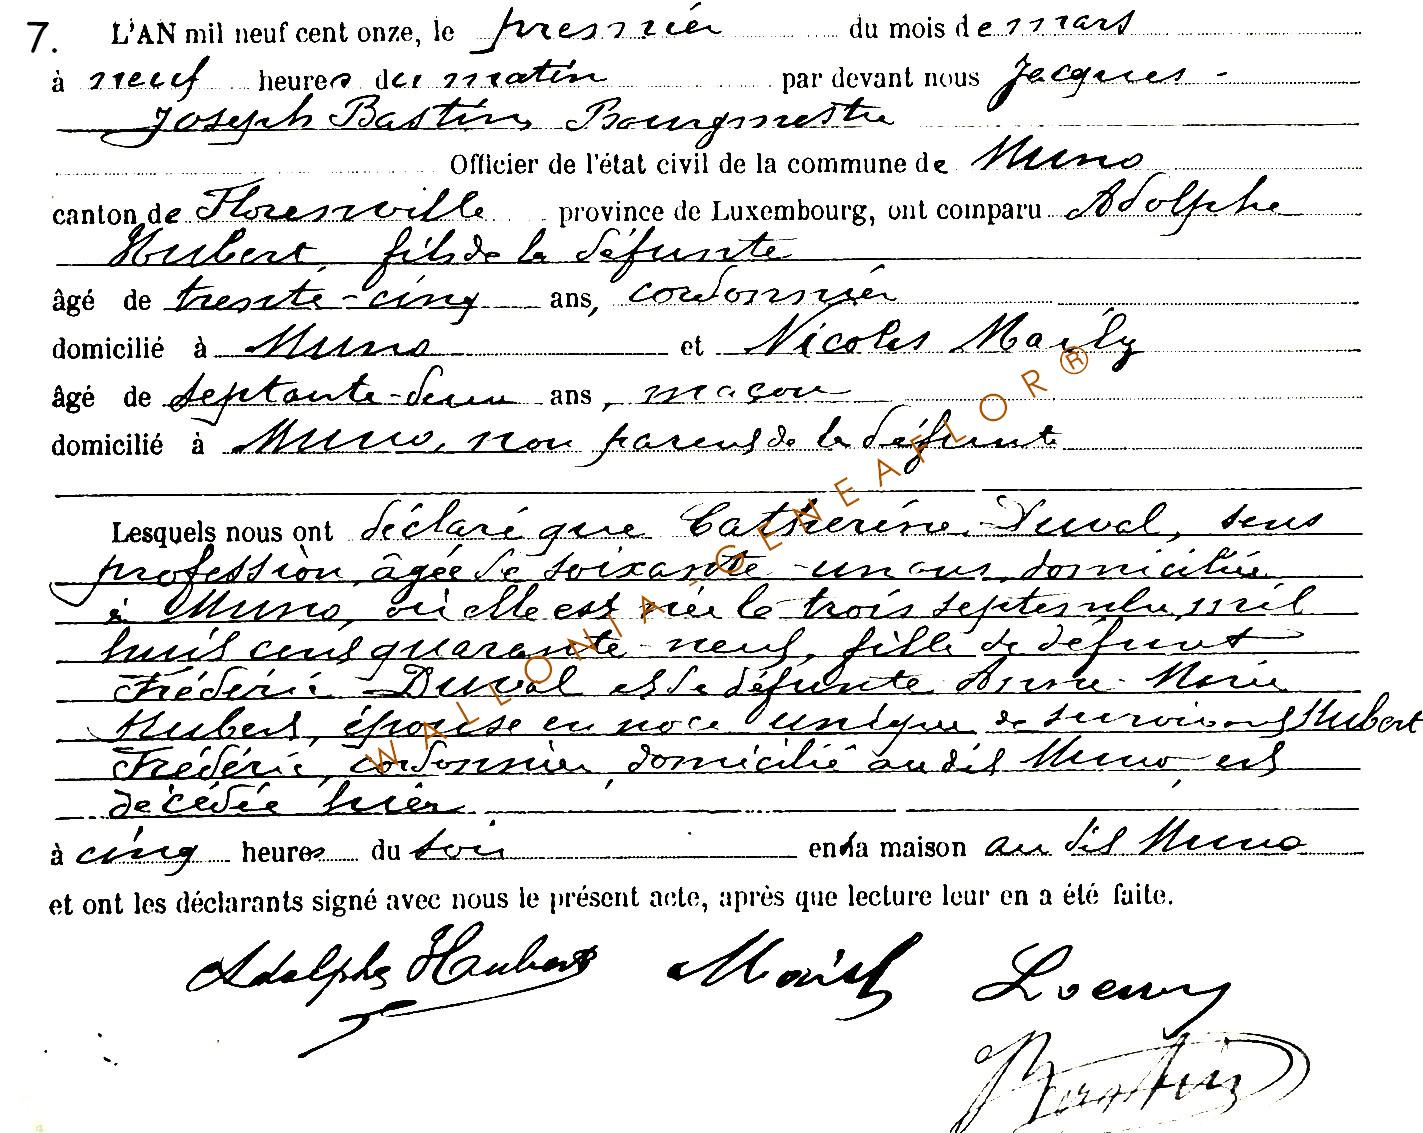 7. L'AN mil neuf cent onze, le premier du mois de mars
à neuf heures du matin par devant nous Jacques-
Joseph Bastin, Bourgmestre
Officier de l'état civil de la commune de Muno
canton de Florenville province de Luxembourg, ont comparu Adolphe
Hubert, fils de la défunte
âgé de trente-cinq ans, cordonnier
domicilié à Muno et Nicolas
âgé de septante-deux ans, maçon
domicilié à Muno, non parent de la défunte
Lesquels nous ont déclaré que Catherine Duval, sans
profession, âgée de soixante-un ans, domiciliée
à Muno, où elle est née le trois septembre mil
huit cent quarante-neuf, fille de défunt
Frédéric Duval et de défunte Anne-Marie
Hubert, épouse en noce unique de survivant Hubert
Frédéric, cordonnier, domicilié au dit Muno, est
décédée hier
à cinq heures du soir en la maison au dit Muno
et ont les déclarants signé avec nous le présent acte, après que lecture leur en a été faite.
Adolphe Hubert
Bastin
WALLONIA-GENEAFLOR®